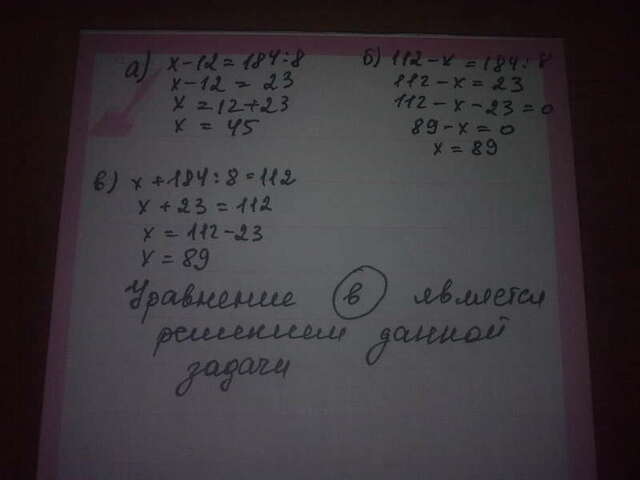 а) x-12=184:8
x-12 = 23
x = 12+23
x = 45
б) 112-x=184:8
112-x=23
112-x-23=0
89-x=0
x=89
в) x+184:8=112
x+23=112
x=112-23
x=89
Уравнение в является
решением данной
задачи